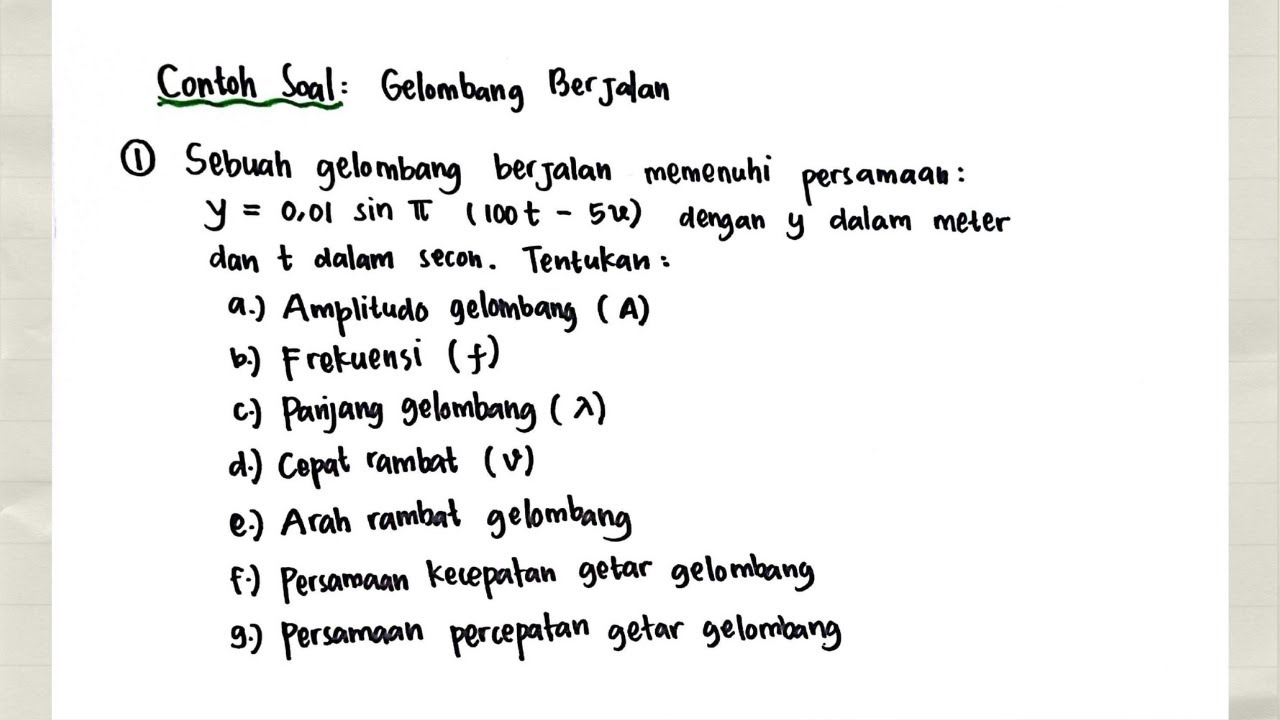 Contoh Soal: Gelombang Berjalan
① Sebuah gelombang berjalan memenuhi persamaan:
y = 0,01 sin π (100t - 5x) dengan y dalam meter
dan t dalam secon. Tentukan:
a.) Amplitudo gelombang (A)
b.) Frekuensi (f)
c.) Panjang gelombang (λ)
d.) Cepat rambat (v)
e.) Arah rambat gelombang
f.) Persamaan kecepatan getar gelombang
g.) Persamaan percepatan getar gelombang